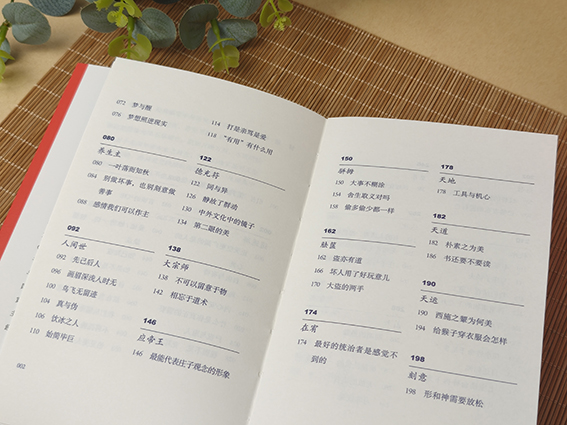 072 梦与醒
076 梦想照进现实
080
养生主
080 一叶落而知秋
084 别做坏事，也别刻意做
善事
088 感情我们可以作主
092
人间世
092 先己后人
096 画眉深浅入时无
100 鸟飞无留迹
104 真与伪
106 饮冰之人
110 始简毕巨
114 打是亲骂是爱
118 “有用”有什么用
122
德充符
122 同与异
126 静故了群动
130 中外文化中的镜子
134 第二眼的美
138
大宗师
138 不可以留意于物
142 相忘于道术
146
应帝王
146 最能代表庄子观念的形象
002
150
骈拇
150 大事不糊涂
154 舍生取义对吗
158 偷多偷少都一样
162
胠箧
162 盗亦有道
166 坏人用了好玩意儿
170 大盗的两手
174
在宥
174 最好的统治者是感觉不
到的
178
天地
178 工具与机心
182
天道
182 朴素之为美
186 书还要不要读
190
天运
190 西施之颦为何美
194 给猴子穿衣服会怎样
198
刻意
198 形和神需要放松